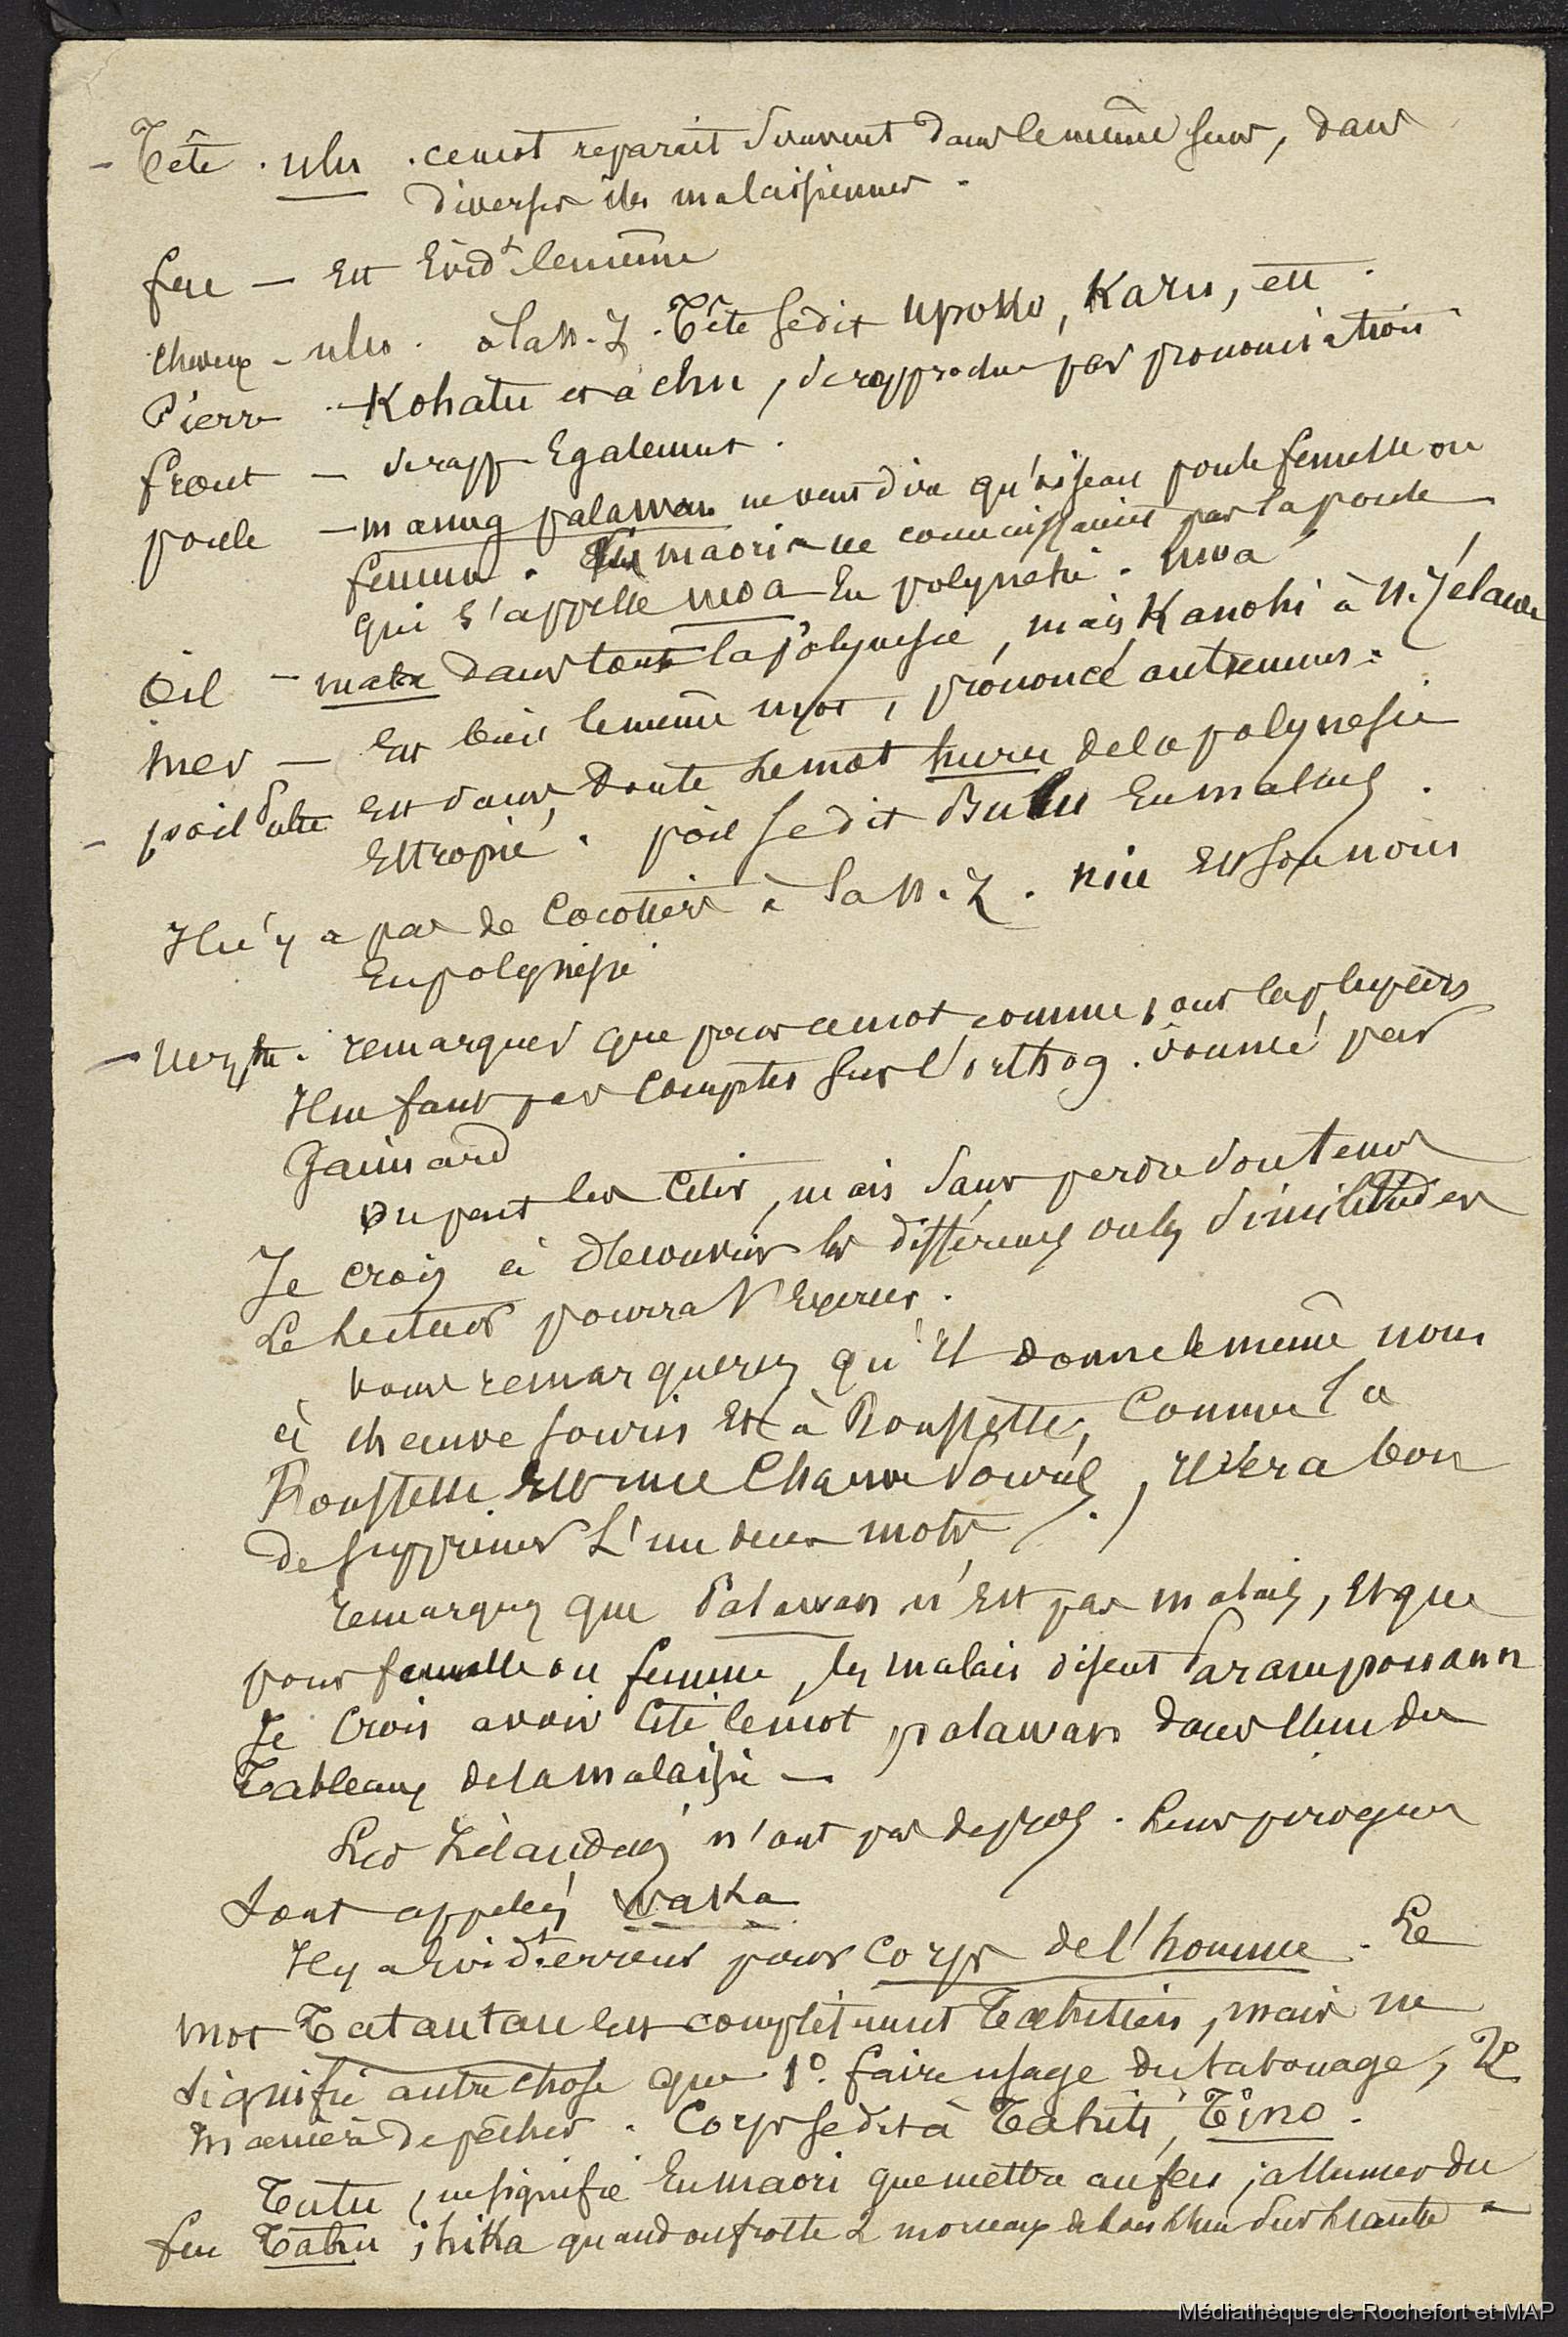 - Tête . ulu . ce mot reparait souvent dans le même sens, dans
diverses iles malaisiennes .
feu — Est Évidt le même
cheveux - ulu . à la N. Z. Tête se dit upoko, Karu, ett .
Pierre . - Kohatu et à ehu, se rapproche par prononciation
front — se rapp. Egalement .
poule — manuq palawan ne veut dire qu'oiseau poule femelle ou
femme . Les maoris ne connaissaient pas la poule
qui s'appelle moa En polynesie . moa
Œil — mata dans toute la Polynesie, mais Kanohi à N. Zélande
mer — Est bien le même mot, prononcé autrement .
- poil Est sans doute le mot huru de la polynesie
Estropié . poil se dit Bulu En malais .
Il n'y a pas de Cocotiers à la N. Z . niu Est son nom
En polynésie
— remarquer que pour ce mot comme pour la plupart
Il ne faut pas compter sur l'orthog . donnée par
Gaimard
On peut les citer, mais sans perdre son temps
Je crois à découvrir les différences ou les similitudes
Le lecteur pourra s'Exercer .
vous remarquerez qu'il donne le même nom
à chauve souris Et à Roussette, Comme la
Roussette Est une Chauve Souris, il sera bon
de supprimer L'un deux mots .
remarquez que Palawan n'Est pas malais, Et que
pour femelle ou femme, les malais disent Parampouann
Je crois avoir cité le mot palawan dans l'un des
Tableaux de la malaisie —
Les Zélandais n'ont pas de pros . Leurs pirogues
sont appelées waka
Il y a Evidt erreur pour Corps de l'homme . Le
mot Tatautau Est complètement Tahitien, mais ne
signifie autre chose que 1o. faire usage du tatouage, 2o
manière de pêcher . Corps se dit à Tahiti, Tino .
Tutu, ne signifie En maori que mettre au feu ; allumer du
feu Tahu ; hika quand on frotte 2 morceaux de bois l'un sur l'autre -
Médiathèque de Rochefort et MAP